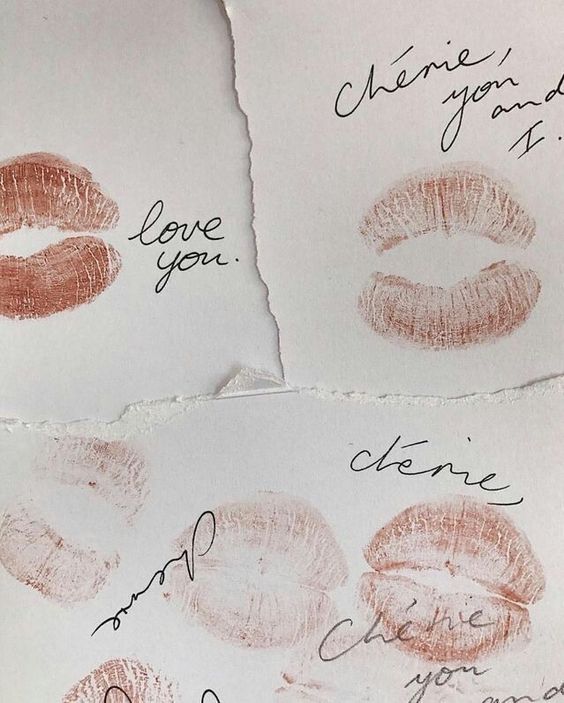 love
you.
chérie,
you
and
I.
chérie,
Chérie
you
and